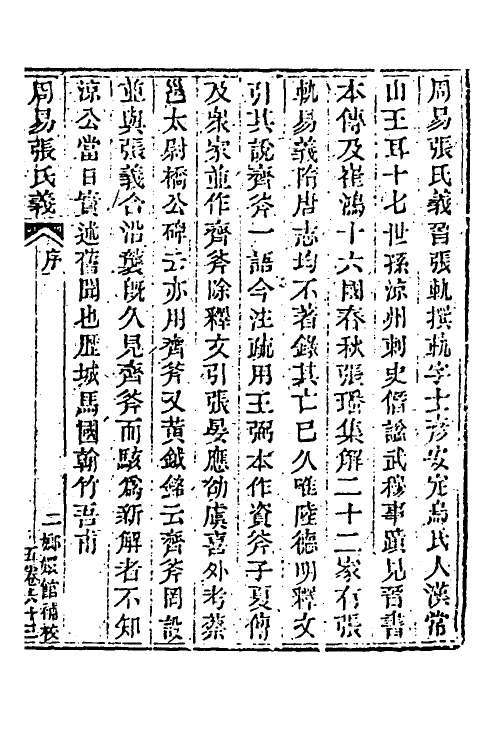 周易張氏義晉張軌撰軌字士彥安定烏氏人漢常
山王耳十七世孫涼州刺史僭謚武穆事蹟見晉書
本傳及崔鴻十六國春秋張璠集解二十二家有張
軌易義隋唐志均不著錄其亡已久唯陸德明釋文
引其說齊斧一語今注疏用王弼本作資斧子夏傳
及衆家並作齊斧除釋文引張晏應劭虞喜外考蔡
邕太尉橋公碑云亦用齊斧又黃鉞銘云齊斧罔設
並與張義合沿襲旣久見齊斧而駭爲新解者不知
涼公當日實述舊聞也歷城馬國翰竹吾甫
周易張氏義 序 二 嫏嬛館補校